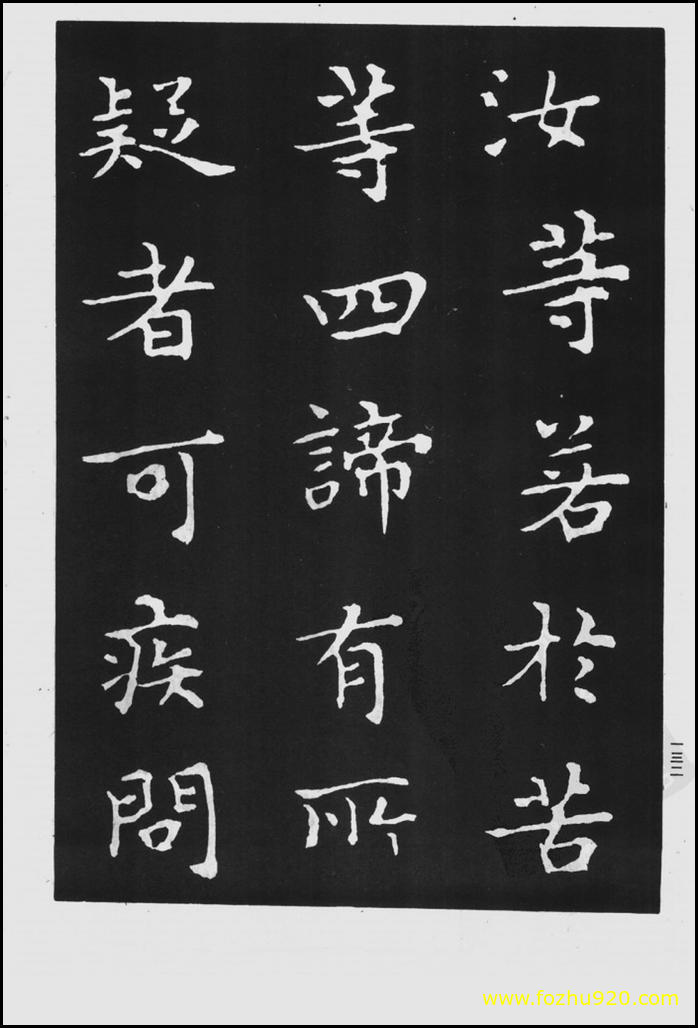 汝等若於苦
等四諦有所
疑者可疾問
三三
www.fozhu920.com